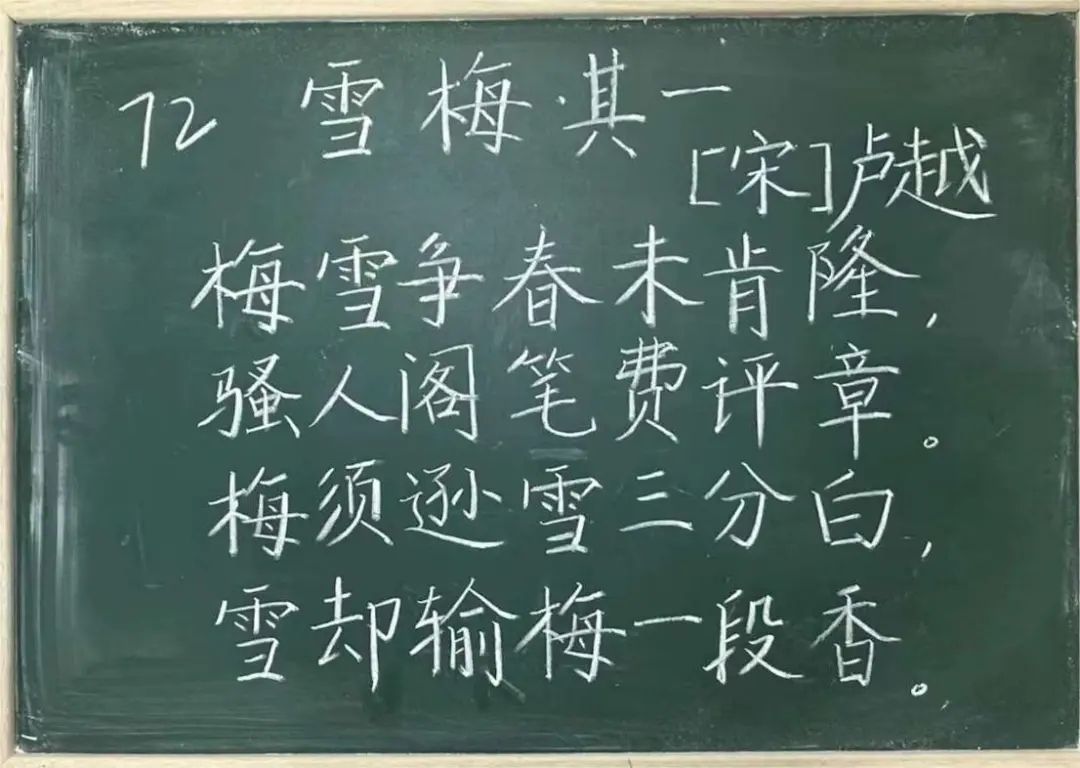 72 雪梅·其一
[宋]卢越
梅雪争春未肯隆,
骚人阁笔费评章。
梅须逊雪三分白,
雪却输梅一段香。